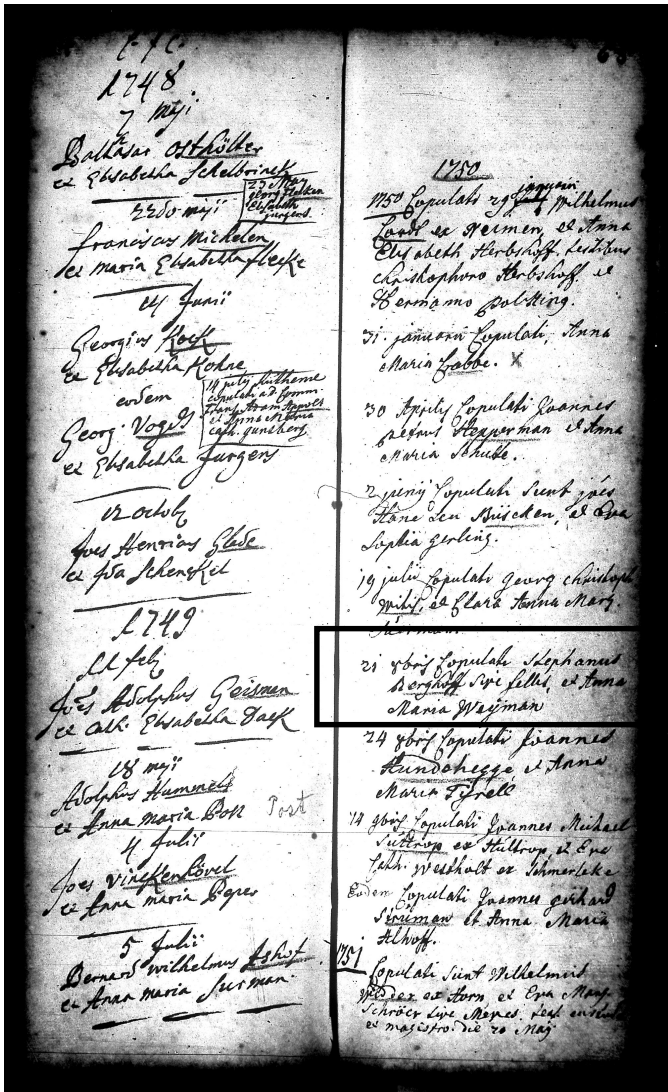 1748
7 Maji
Balthasar Ostholter
et Elisabetha Schelbrinck
23 May
Georg
Elisabeth
jurgens.
22do maij
franciscus Michelen
et maria Elisabetha flecke
14 Junii
Georgius Kock
et Elisabetha Kohne
eodem
14 july
copulati ad
Adam
et Anna Maria
Cath. gunsberg
Georg Vogels
et Elisabetha Jurgens
12 octob
Joes Henricus Glede
et Ida Schenckel
1749
11 feb
Joes Adolphus Geismen
et Cath. Elisabetha Dack
18 maji
Adolphus Hummels
et Anna maria Post
4 Julii
Joes Vinckenhövel
et Anna maria Peper
5 Julii
Bernard Wilhelmus Ashof
et Anna maria Surman
1750
1750 Copulati 29 januarii Wilhelmus
ex et Anna
Elisabeth Herbshoff. testibus
christophoro Herbshoff. et
Hermanno
31. januarii Copulati, Anna
Maria X
30 Aprilis Copulati Joannes
petrus Hepperman et Anna
Maria Schulte.
2 junij Copulati Sunt joes
Hane seu Büscken, et Eva
Sophia gerling.
19 julii Copulati Georg christoph
et Clara Anna Marg.
21 8bris Copulati Stephanus
Berghoff sive filles, et Anna
Maria Weyman
24 8bris Copulati Joannes
Hundehegge et Anna
Maria Tyrell
14 9bris Copulati Joannes Michael
Suttrop ex Hultrop, et Eva
Cath. Westholt ex Schmerleke
Eodem Copulati Joannes gerhard
Struman et Anna Maria
Alhoff.
1751
Copulati Sunt Wilhelmus
ex Horn, et Eva
Schröer sive Meves.
et magistro. die 20 Maij